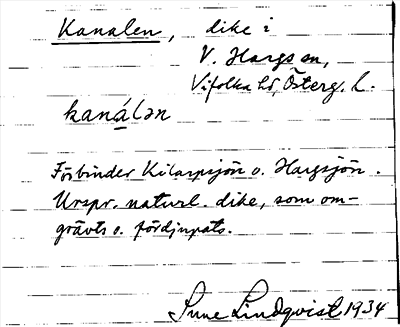 Kanalen, dike i
V. Hargs sn,
Vifolka hd, Österg. l.
kanálən
Förbinder Kilarpsjön o. Hargsjön.
Urspr. naturl. dike, som om-
grävts o. fördjupats.
Sune Lindqvist 1934